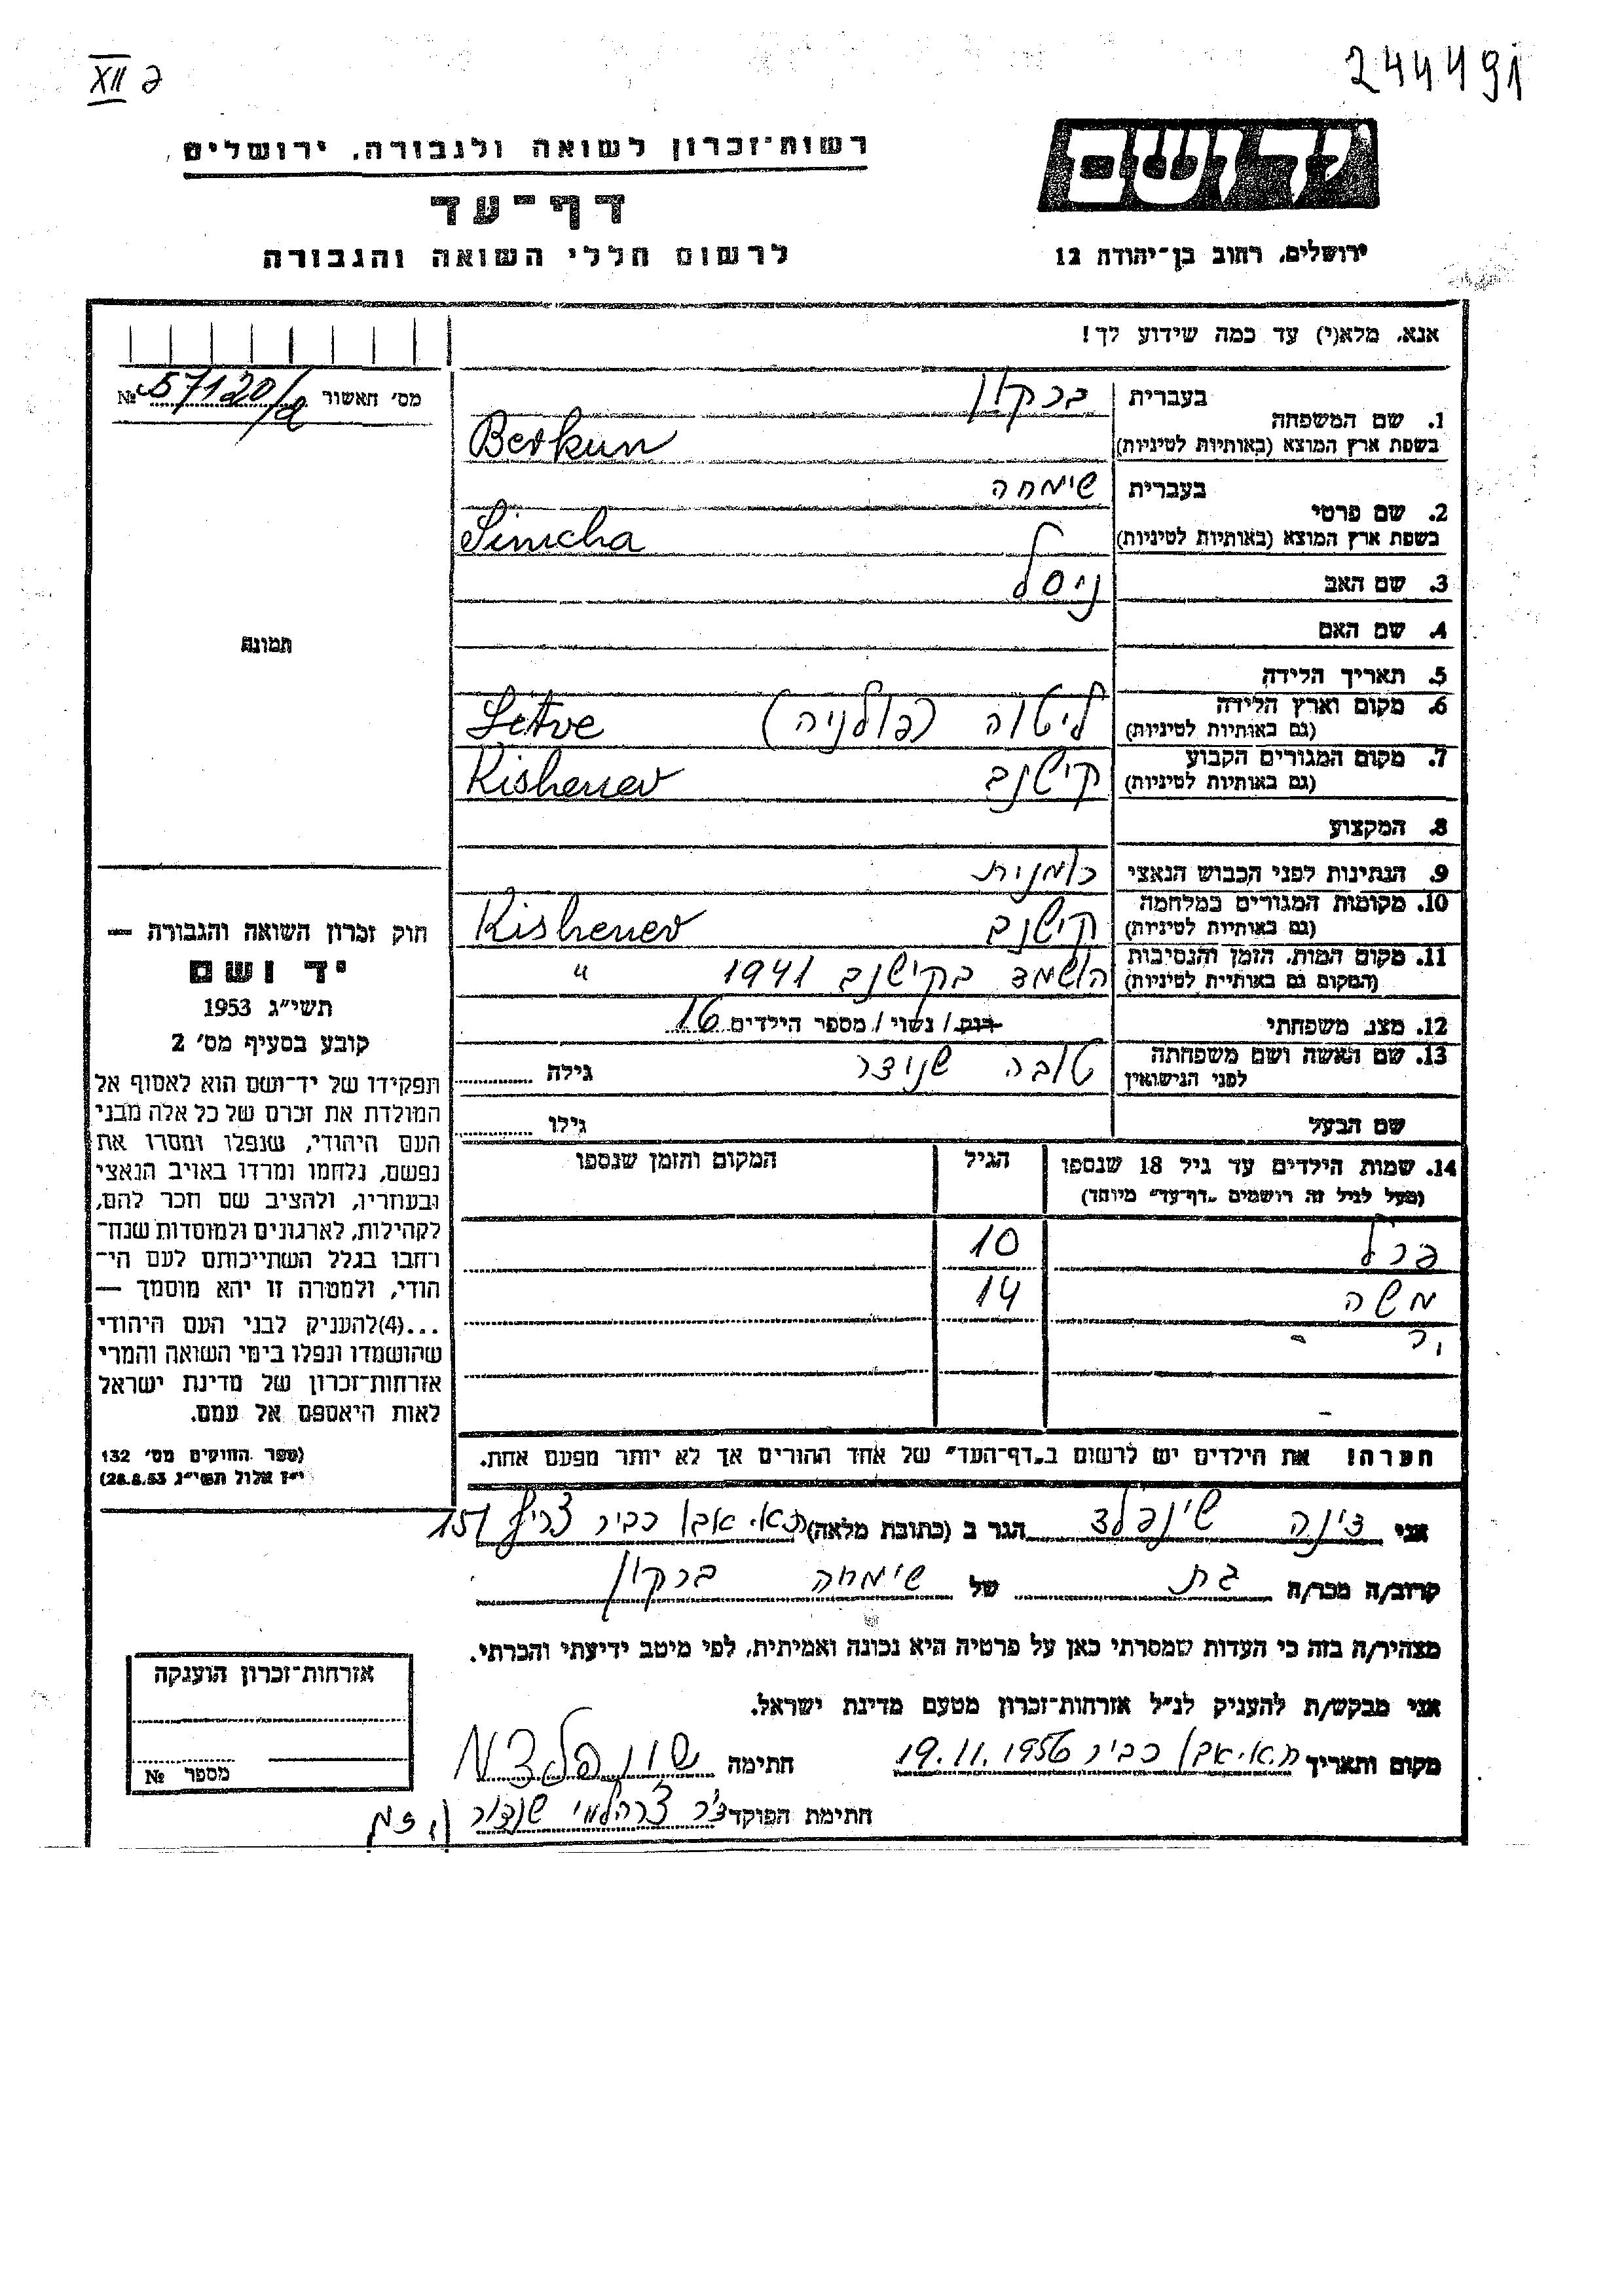 XII 2
244491
רשות־זכרון לשואה ולגבורה, ירושלים
דף־עד
לרשום חללי השואה והגבורה
יד ושם
ירושלים, רחוב בן־יהודה 12
אנא, מלא(י) עד כמה שידוע לך!
מס׳ האשור № 57120/
1. שם המשפחה
בעברית ברקון
בשפת ארץ המוצא (באותיות לטיניות) Berkun
2. שם פרטי
בעברית שימחה
בשפת ארץ המוצא (באותיות לטיניות) Simcha
3. שם האב ניסל
4. שם האם
5. תאריך הלידה
6. מקום וארץ הלידה ליטוה (פולניה) Letve
(גם באותיות לטיניות)
7. מקום המגורים הקבוע קישנב Kishenev
(גם באותיות לטיניות)
8. המקצוע
9. הנתינות לפני הכבוש הנאצי רומנית
10. מקומות המגורים במלחמה קישנב Kishenev
(גם באותיות לטיניות)
11. מקום המות, הזמן והנסיבות הושמד בקישנב 1941 "
(המקום גם באותיות לטיניות)
12. מצב משפחתי רווק / נשוי / מספר הילדים 16
13. שם האשה ושם משפחתה טובה שנוצר גילה
לפני הנישואין
שם הבעל גילו
14. שמות הילדים עד גיל 18 שנספו הגיל המקום והזמן שנספו
(מעל לגיל זה רושמים „דף־עד״ מיוחד)
פרל 10
משה 14
תמונה
חוק זכרון השואה והגבורה —
יד ושם
תשי״ג 1953
קובע בסעיף מס׳ 2
תפקידו של יד־ושם הוא לאסוף אל
המולדת את זכרם של כל אלה מבני
העם היהודי, שנפלו ומסרו את
נפשם, נלחמו ומרדו באויב הנאצי
ובעוזריו, ולהציב שם וזכר להם,
לקהילות, לארגונים ולמוסדות שנח־
רחבו בגלל השתייכותם לעם הי־
הודי, ולמטרה זו יהא מוסמך —
...(4)להעניק לבני העם היהודי
שהושמדו ונפלו בימי השואה והמרי
אזרחות־זכרון של מדינת ישראל
לאות היאספם אל עמם.
(ספר החוקים מס׳ 132
י״ז אלול תשי״ג 28.8.53)
הערה! את הילדים יש לרשום ב„דף־העד״ של אחד ההורים אך לא יותר מפעם אחת.
אני צינה שינפלד הגר ב (כתובת מלאה) ת.א. אבו כביר צריף 151
קרוב/ה מכר/ה בת של שימחה ברקון
מצהיר/ה בזה כי העדות שמסרתי כאן על פרטיה היא נכונה ואמיתית, לפי מיטב ידיעתי והכרתי.
אני מבקש/ת להעניק לנ״ל אזרחות־זכרון מטעם מדינת ישראל.
מקום ותאריך ת.א. אבו כביר 19.11.1956 חתימה
חתימת הפוקד
אזרחות־זכרון הוענקה
מספר №